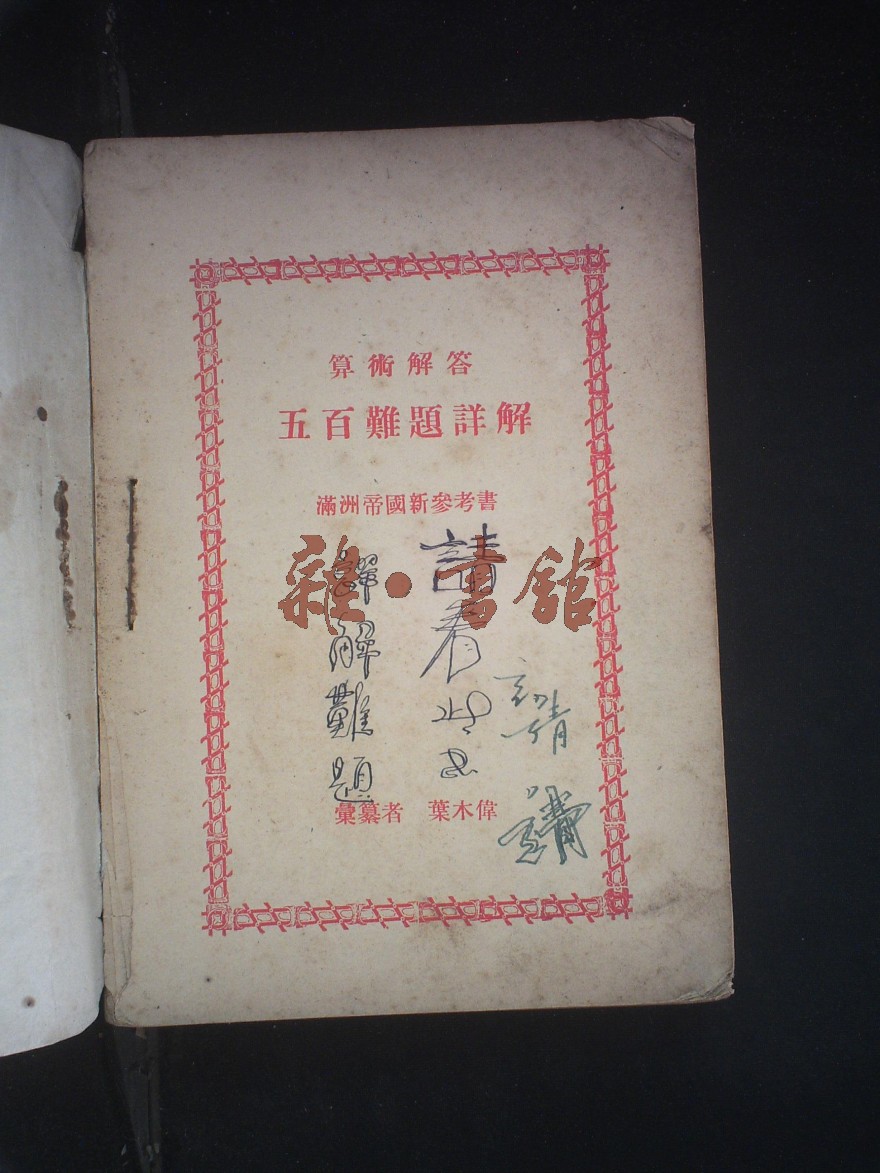 算術解答
五百難題詳解
滿洲帝國新參考書
雜·書館
請看此書
解難題
請
彙纂者 葉木偉